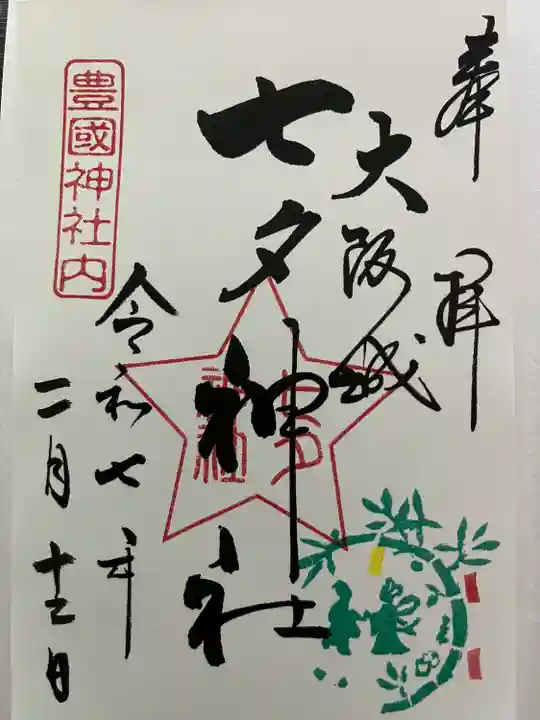 奉拝
大阪城
七夕神社
七夕
神社
令和七年
二月十二日
豊國神社内